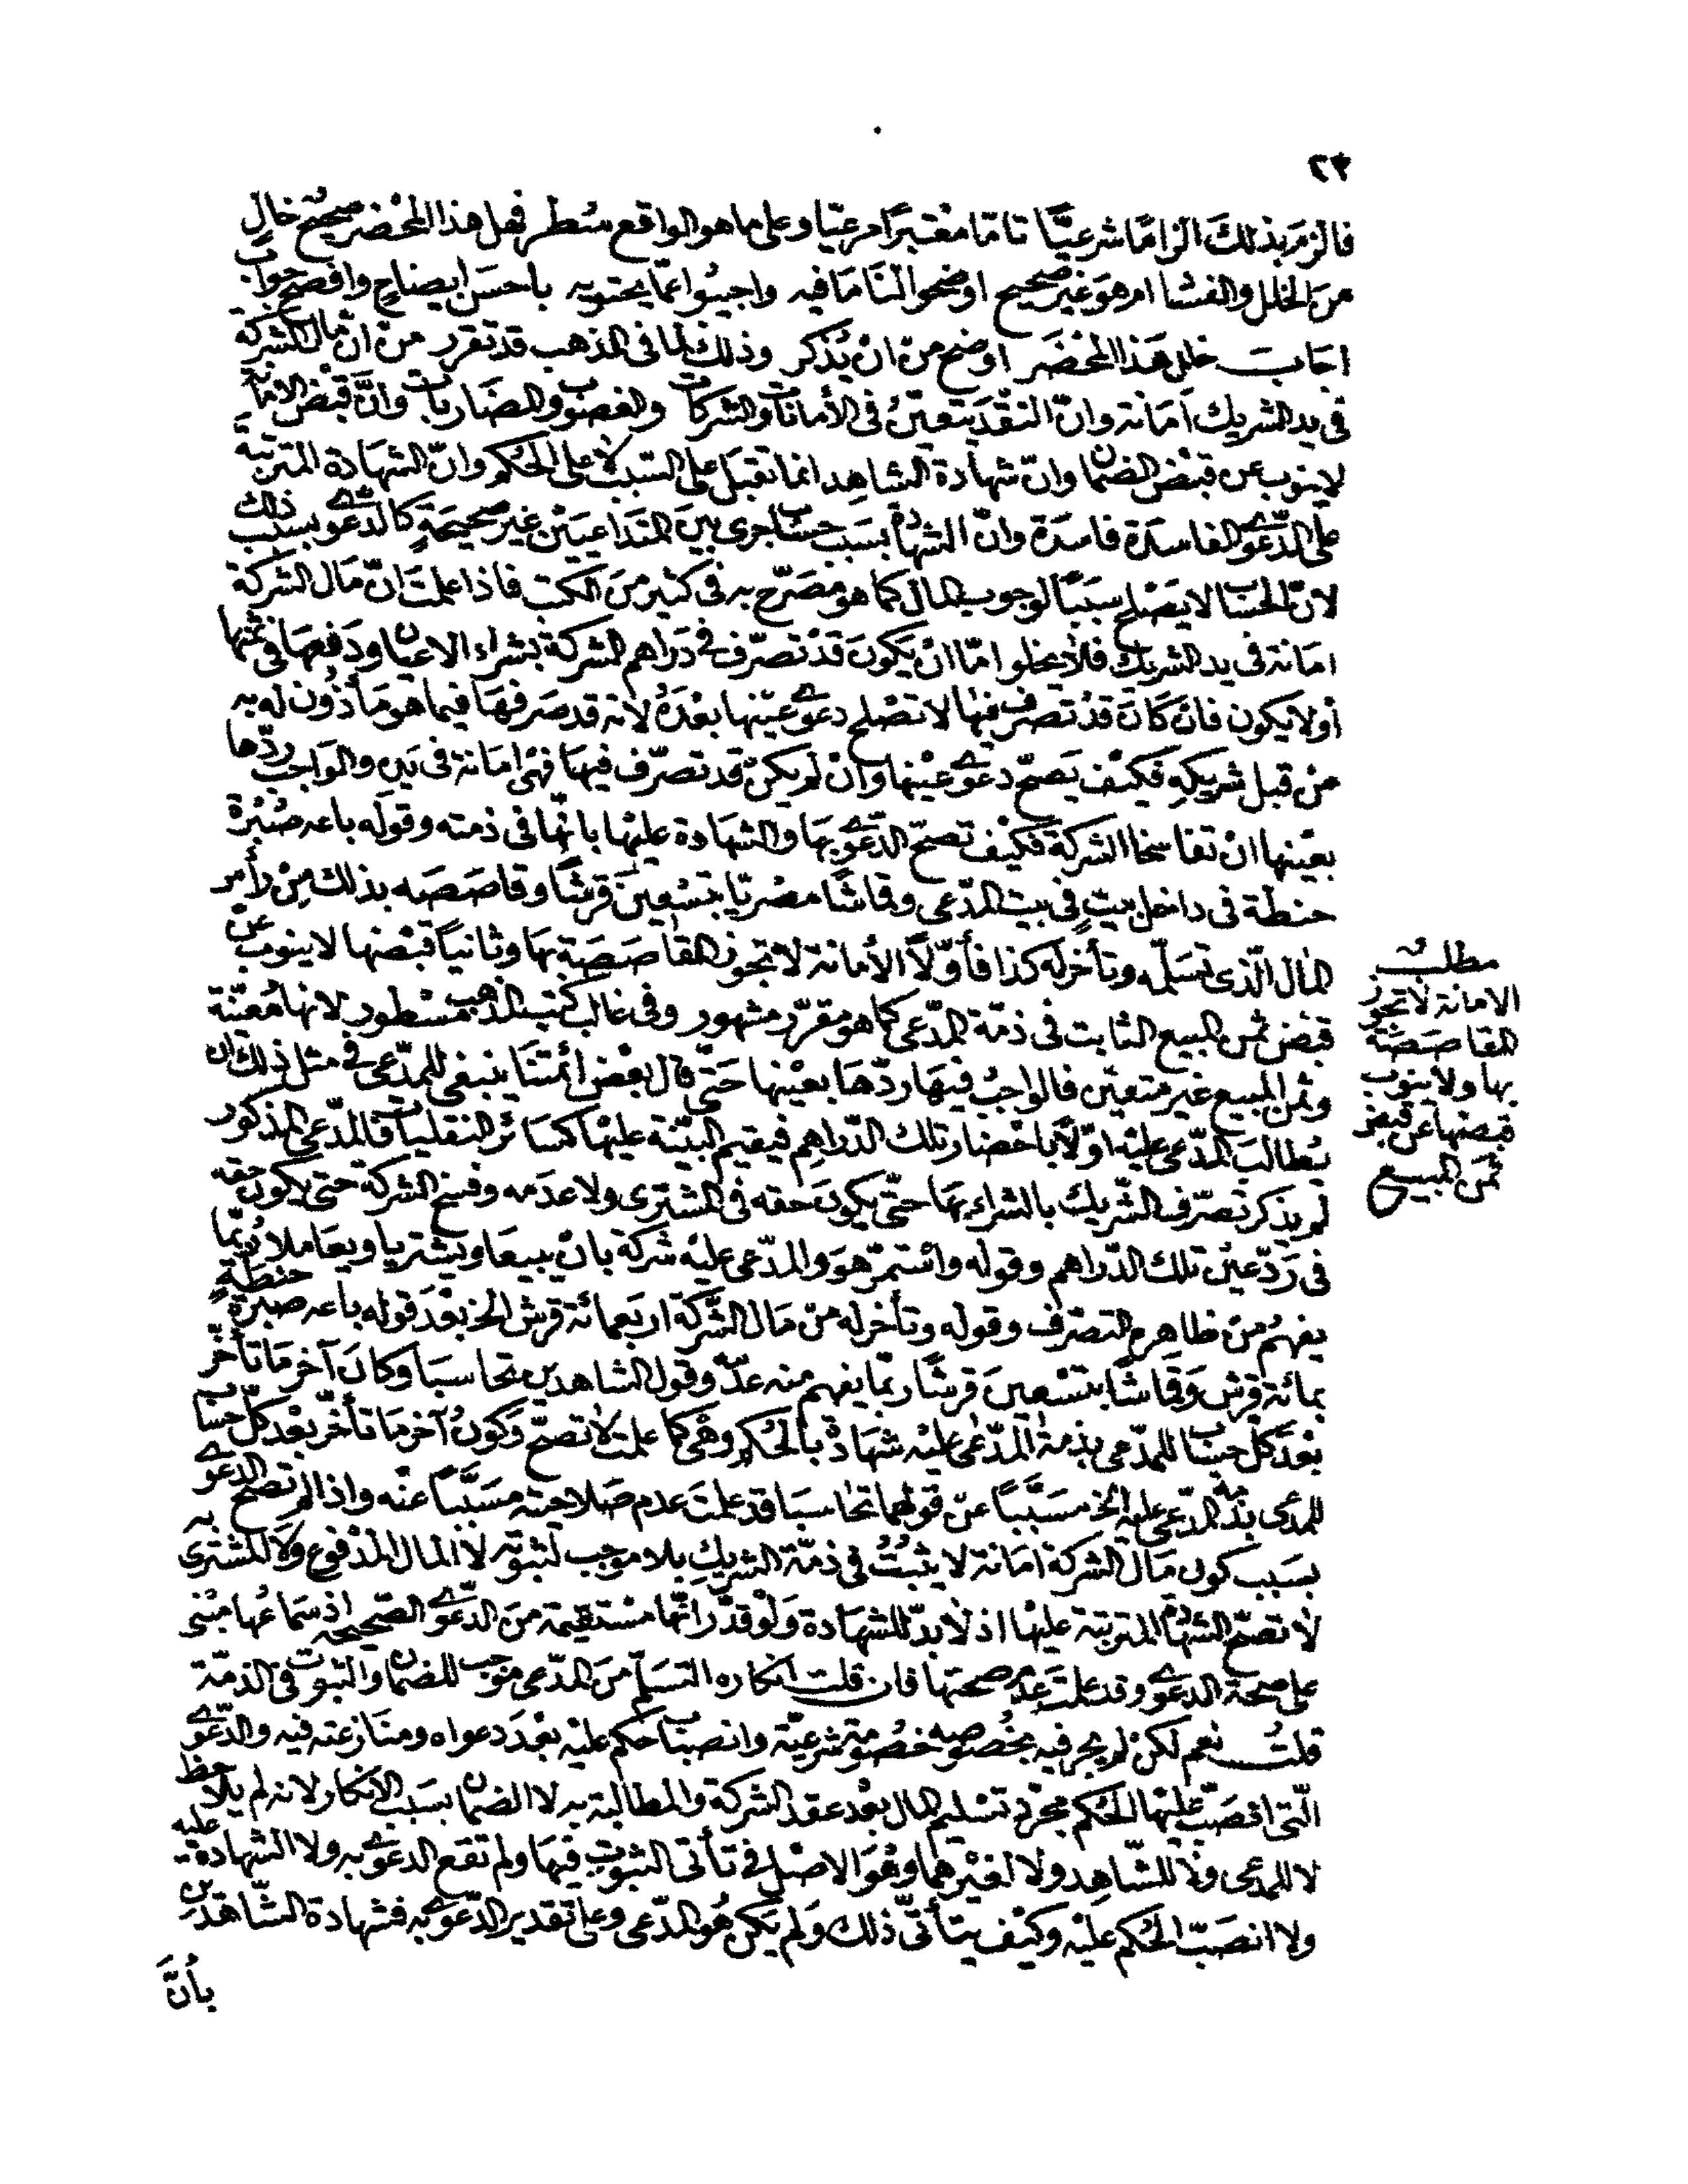 ٢٣
فالزمَ بذلكَ الزامًا شرعيًّا تامًّا معْتبرًا مرعيًّا وعلى ما هو الواقع سُطر فهل هذا المحْضر صحيحٌ خالٍ
من الخلل والفشا ام هوَ غير صحيح اوضحوا لنَا مَا فيه واجيبُوا عمّا يحتويه باحسَن ايضاحٍ وافصح جوابٍ
اجَابَ خلل هَذا المحْضَر اوضح من انْ يُذكر وذلك لما فى المذهب قد تقرر من ان مال الشركة
فى يد الشريك اَمَانة وانّ النقْدَ يتعيّنُ فى الأمانات والشركات والغصُوب والمضَاربات وانَّ قبْض الامانة
لا ينوب عن قبْض الضمان وانّ شهادة الشاهِد انما تقبَل على السّبب لا على الحُكم وانّ الشهَادة المترتبَة
على الدّعوى الفاسدَة فاسدَة وانّ الشهادة بسَبب حسَاب جرى بين المتدَاعيَيْن غير صحيحَةٍ كالدّعوى بسبب ذلك
لانّ الحسَاب لا يصْلح سببًا لوجوب المال كما هو مصَرّح به فى كثير من الكتب فاذا علمتَ انّ مَال الشركة
امَانة فى يد الشريك فلا يخلوا امّا انْ يكونَ قدْ تصرّف فى دَراهم الشركة بشراء الاعيان ودَفعهَا فى ثمنها
أولا يكون فانْ كَانَ قدْ تصرف فيهَا لا تصْلح دعوى عيْنها بعْدَهُ لانه قد صَرفهَا فيما هو مَأذُون له به
من قبل شريكهِ فكيْف يَصحّ دعوى عيْنها وانْ لم يكن قد تصرّف فيهَا فهى امَانة فى يَدِه والوَاجبُ ردّها
بعيْنها انْ تفاسخا الشركة فكيْف تصحّ الدّعوى بهَا والشهَادة عليْها بانّها فى ذمته وقوله باعه صُبْرة
حنطة فى داخل بيتٍ فى بيت المدّعى وقماشًا مصْريّا بتسْعينَ قرشًا وقاصَصَه بذلك مِنْ رأسِ
المال الّذى تسَلّمه وتأخر له كذا فأوّلاً الأمانة لا تجوز المقاصَصَة بهَا وثانيًا قبْضها لا ينوب عَنْ
قبْض ثمن المبيع الثابت فى ذمّة المدّعى كما هو مقرّر مشهور وفى غالب كتب المذهب مسْطور لانهَا مُعيّنة
وثمن المبيع غير متعيّن فالواجبُ فيهَا ردّهَا بعيْنها حَتّى قال بعْض أئمتنَا ينبغى للمدّعى فى مثل ذلك ان
يُطالبَ المدّعى عليْه اوّلاً باحْضار تلك الدّراهِم فيقيم البيّنة عليْها كسَائر النقليات فالمدّعى المذكور
لم يذكر تصرّف الشّريك بالشراء بهَا حتّى يكونَ حقه فى المشترى ولا عدَمه وفسخ الشركة حتى يكون حقه
فى رَدّ عيْن تلك الدّراهم وقوله واسْتمرّ هوَ والمدّعى عليْه شركة بانْ يبيعَا ويشتريا ويعَاملا ربّما
يفهمُ منْ ظاهِره التصْرف وقوله وتأخر له منْ مَال الشّركة اربَعمائة قرش الخ بعْدَ قوله باعه صبرة حنطةٍ
بمائة قرش وَقماشًا بتسْعينَ قرشًا ربّما يفهم منه عدّه وقول الشاهدين تحاسبَا وكانَ آخر مَا تأخّر
بعْدَ كلّ حسَاب للمدّعى بذمة المدّعى عليْه شهَادةٌ بالحُكم وهْىَ كما علمتَ لا تصحّ وَكونُ آخر مَا تأخّر بعْد كلّ حسَاب
للمدّعى بذمة المدّعى عليه الخ مسَبَّبًا عنْ قولهما تحاسبَا قد علمتَ عدم صَلاحيته مسَبَّبًا عنْه واذا لم تصحّ الدعوى به
بسَبب كون مَال الشركة امَانة لا يثبُتُ فى ذمّة الشريك بلا موجب لثبوته لا المال المدْفوع ولا المشترى
لا تصحّ الشهادة المترتبة عليْها اذ لا بدّ للشهَادة وَلوْ قدّر انّها مسْتقيمَة منَ الدّعوى الصّحيحة اذ سَماعُها مبْنى
على صحة الدعوى وقد علمتَ عدم صحتها فان قلت انكاره التسلّم منَ المدّعى موجب للضمان والثبوت فى الذمّة
قلتُ نعم لكنْ لم يجر فيه بخُصُوصِه خصُومَة شرعيّة وانصبَاب حكم عليْه بعْدَ دعواه ومنَازعته فيه والدّعوى
الّتى انصَبّ عليْها الحُكم مجرّد تسْليم المال بعْد عقد الشركة والمطالبة به لا الضمان بسَبب الانكار لانه لم يلاحظ
لا للمدعى ولا للشّاهِد ولا لغيْرهما وهُوَ الاصْل فى تأتى الثبوت فيهَا ولم تقع الدعوى به ولا الشهادة عليه
ولا انصَبّ الحُكم عليْه وكيْف يتأتّى ذلك وَلم يَكنْ هُو المدّعى وعلى تقدير الدّعوى به فشهادة الشّاهدَين
بأنَّ
مطلب
الامانة لا تجوز
المقاصَصَة
بها ولا ينوب
قبضها عن قبض
ثمن المبيع